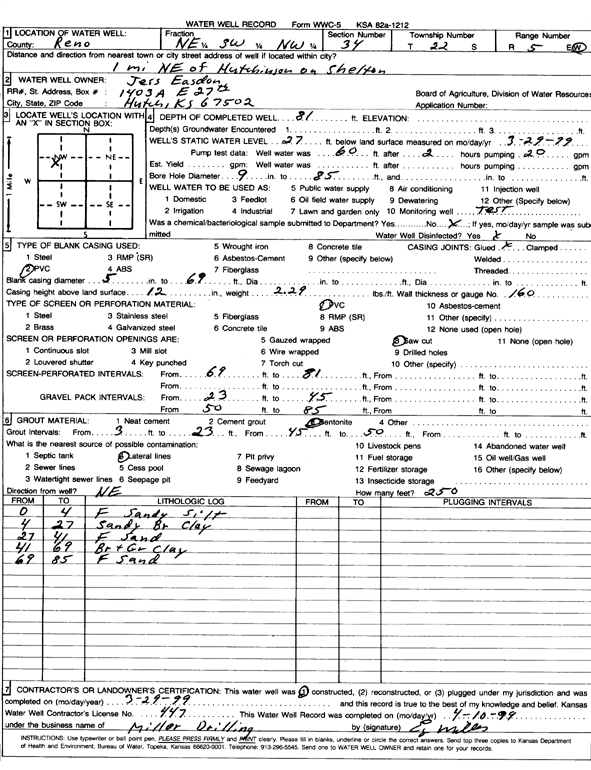 WATER WELL RECORD Form WWC-5 KSA 82a-1212
1 LOCATION OF WATER WELL: Fraction Section Number Township Number Range Number
County: Reno NE ¼ SW ¼ NW ¼ 34 T 22 S R 5 E/W
Distance and direction from nearest town or city street address of well if located within city?
1 mi NE of Hutchinson on Shelton
2 WATER WELL OWNER: Jess Easdon
RR#, St. Address, Box # : 1403 A E 27th Board of Agriculture, Division of Water Resources
City, State, ZIP Code : Hutch, KS 67502 Application Number:
3 LOCATE WELL'S LOCATION WITH AN "X" IN SECTION BOX:
N
NW NE
W E
SW SE
S
1 Mile
X
4 DEPTH OF COMPLETED WELL 81 ft. ELEVATION:
Depth(s) Groundwater Encountered 1. ft. 2. ft. 3. ft.
WELL'S STATIC WATER LEVEL 27 ft. below land surface measured on mo/day/yr 3-29-99
Pump test data: Well water was 60 ft. after 2 hours pumping 20 gpm
Est. Yield gpm: Well water was ft. after hours pumping gpm
Bore Hole Diameter 9 in. to 85 ft., and in. to ft.
WELL WATER TO BE USED AS: 5 Public water supply 8 Air conditioning 11 Injection well
1 Domestic 3 Feedlot 6 Oil field water supply 9 Dewatering 12 Other (Specify below)
2 Irrigation 4 Industrial 7 Lawn and garden only 10 Monitoring well Test
Was a chemical/bacteriological sample submitted to Department? Yes No X ; If yes, mo/day/yr sample was sub
mitted Water Well Disinfected? Yes X No
5 TYPE OF BLANK CASING USED: 5 Wrought iron 8 Concrete tile CASING JOINTS: Glued X Clamped
1 Steel 3 RMP (SR) 6 Asbestos-Cement 9 Other (specify below) Welded
2 PVC 4 ABS 7 Fiberglass Threaded
Blank casing diameter 5 in. to 69 ft., Dia in. to ft., Dia in. to ft.
Casing height above land surface 12 in., weight 2.29 lbs./ft. Wall thickness or gauge No. 160
TYPE OF SCREEN OR PERFORATION MATERIAL: 7 PVC 10 Asbestos-cement
1 Steel 3 Stainless steel 5 Fiberglass 8 RMP (SR) 11 Other (specify)
2 Brass 4 Galvanized steel 6 Concrete tile 9 ABS 12 None used (open hole)
SCREEN OR PERFORATION OPENINGS ARE: 5 Gauzed wrapped 8 Saw cut 11 None (open hole)
1 Continuous slot 3 Mill slot 6 Wire wrapped 9 Drilled holes
2 Louvered shutter 4 Key punched 7 Torch cut 10 Other (specify)
SCREEN-PERFORATED INTERVALS: From 69 ft. to 81 ft., From ft. to ft.
From ft. to ft., From ft. to ft.
GRAVEL PACK INTERVALS: From 23 ft. to 45 ft., From ft. to ft.
From 50 ft. to 85 ft., From ft. to ft.
6 GROUT MATERIAL: 1 Neat cement 2 Cement grout 3 Bentonite 4 Other
Grout Intervals: From 3 ft. to 23 ft., From 45 ft. to 50 ft., From ft. to ft.
What is the nearest source of possible contamination: 10 Livestock pens 14 Abandoned water well
1 Septic tank 4 Lateral lines 7 Pit privy 11 Fuel storage 15 Oil well/Gas well
2 Sewer lines 5 Cess pool 8 Sewage lagoon 12 Fertilizer storage 16 Other (specify below)
3 Watertight sewer lines 6 Seepage pit 9 Feedyard 13 Insecticide storage
Direction from well? NE How many feet? 250
FROM TO LITHOLOGIC LOG FROM TO PLUGGING INTERVALS
0 4 F Sandy Silt
4 27 Sandy Br Clay
27 41 F Sand
41 69 Br + Gr Clay
69 85 F Sand
7 CONTRACTOR'S OR LANDOWNER'S CERTIFICATION: This water well was (1) constructed, (2) reconstructed, or (3) plugged under my jurisdiction and was
completed on (mo/day/year) 3-29-99 and this record is true to the best of my knowledge and belief. Kansas
Water Well Contractor's License No. 447 This Water Well Record was completed on (mo/day/yr) 4-10-99
under the business name of Miller Drilling by (signature)
INSTRUCTIONS: Use typewriter or ball point pen. PLEASE PRESS FIRMLY and PRINT clearly. Please fill in blanks, underline or circle the correct answers. Send top three copies to Kansas Department
of Health and Environment, Bureau of Water, Topeka, Kansas 66620-0001. Telephone: 913-296-5545. Send one to WATER WELL OWNER and retain one for your records.